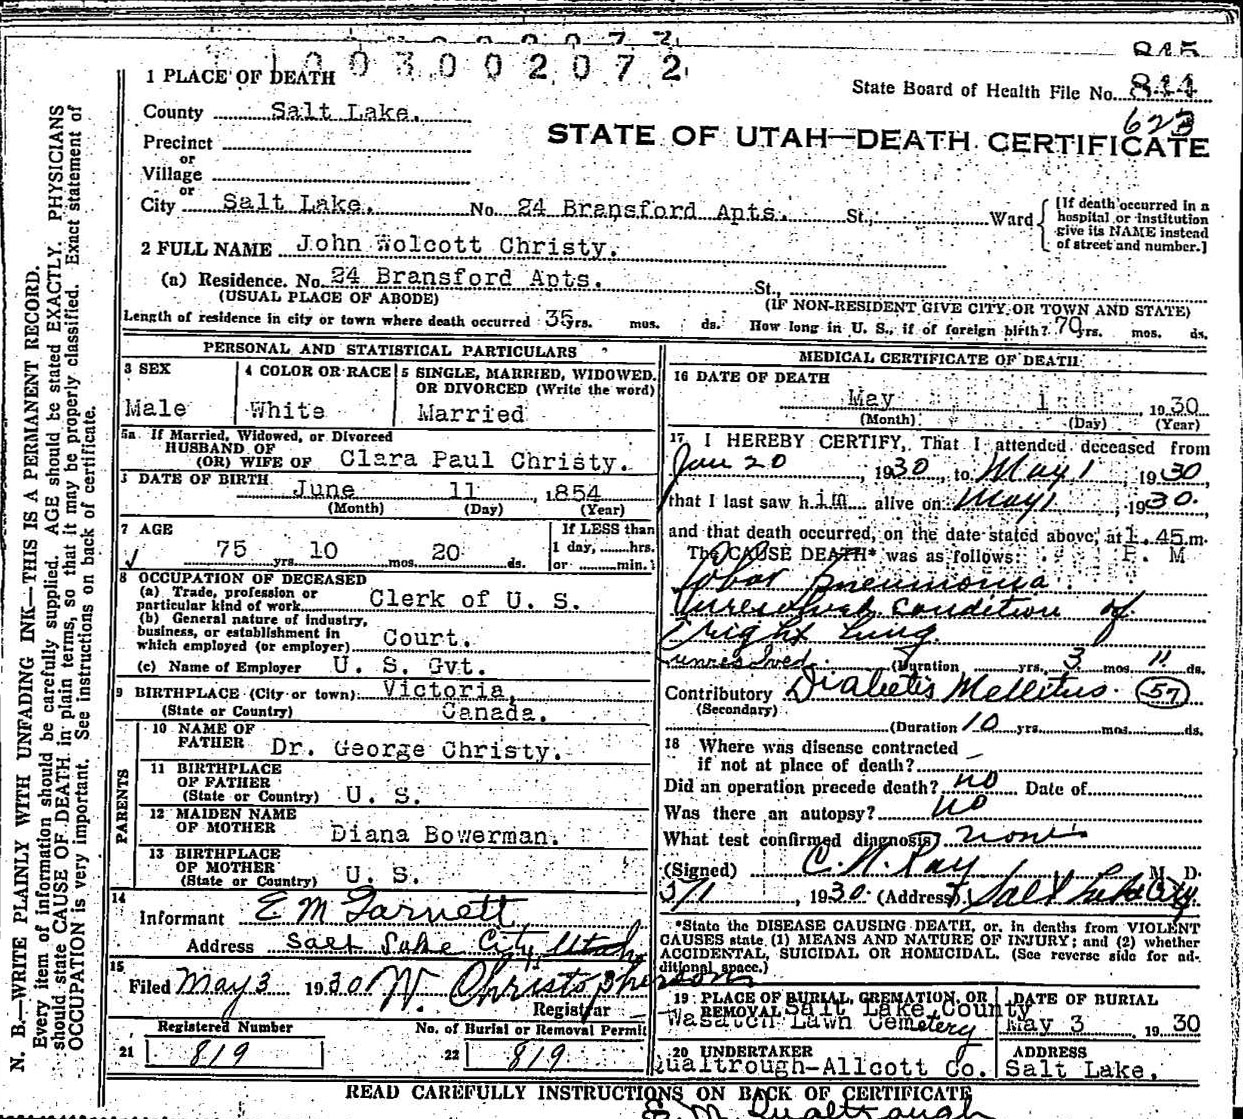 1003002072
845
1 PLACE OF DEATH
State Board of Health File No. 844
County Salt Lake.
623
STATE OF UTAH—DEATH CERTIFICATE
Precinct
or
Village
or
City Salt Lake. No. 24 Bransford Apts. St., Ward
[If death occurred in a hospital or institution give its NAME instead of street and number.]
2 FULL NAME John Wolcott Christy.
(a) Residence. No. 24 Bransford Apts. St.,
(USUAL PLACE OF ABODE) (IF NON-RESIDENT GIVE CITY OR TOWN AND STATE)
Length of residence in city or town where death occurred 35 yrs. mos. ds. How long in U. S., if of foreign birth? 70 yrs. mos. ds.
PERSONAL AND STATISTICAL PARTICULARS
3 SEX
Male
4 COLOR OR RACE
White
5 SINGLE, MARRIED, WIDOWED, OR DIVORCED (Write the word)
Married
5a If Married, Widowed, or Divorced
HUSBAND OF
(OR) WIFE OF Clara Paul Christy.
DATE OF BIRTH
June 11, 1854
(Month) (Day) (Year)
7 AGE
75 yrs. 10 mos. 20 ds.
If LESS than
1 day, hrs.
or min.
8 OCCUPATION OF DECEASED
(a) Trade, profession or
particular kind of work Clerk of U. S.
(b) General nature of industry,
business, or establishment in
which employed (or employer) Court.
(c) Name of Employer U. S. Gvt.
9 BIRTHPLACE (City or town) Victoria,
(State or Country) Canada.
PARENTS
10 NAME OF
FATHER Dr. George Christy.
11 BIRTHPLACE
OF FATHER
(State or Country) U. S.
12 MAIDEN NAME
OF MOTHER Diana Bowerman.
13 BIRTHPLACE
OF MOTHER
(State or Country) U. S.
14
Informant E M Garnett
Address Salt Lake City, Utah
15
Filed May 3 1930 W. Christopherson
Registrar
Registered Number
21 819
No. of Burial or Removal Permit
22 819
MEDICAL CERTIFICATE OF DEATH
16 DATE OF DEATH
May 1, 1930
(Month) (Day) (Year)
17 I HEREBY CERTIFY, That I attended deceased from
Jan 20, 1930, to May 1, 1930
that I last saw him alive on May 1, 1930.
and that death occurred, on the date stated above, at 1.45 m.
The CAUSE DEATH* was as follows: P. M
Lobar pneumonia
condition of
right Lung
(Duration yrs. 3 mos. 11 ds.
Contributory Diabetis Mellitus. 57
(Secondary)
(Duration 10 yrs. mos. ds.
18 Where was disease contracted
if not at place of death? —
Did an operation precede death? no Date of
Was there an autopsy? no
What test confirmed diagnosis?
(Signed) M. D.
5/1, 1930 (Address) Salt Lake City
*State the DISEASE CAUSING DEATH, or, in deaths from VIOLENT
CAUSES state (1) MEANS AND NATURE OF INJURY; and (2) whether
ACCIDENTAL, SUICIDAL OR HOMICIDAL. (See reverse side for ad-
ditional space.)
19 PLACE OF BURIAL, CREMATION, OR
REMOVAL Salt Lake County
Wasatch Lawn Cemetery
DATE OF BURIAL
May 3 1930
20 UNDERTAKER
Qualtrough-Allcott Co.
ADDRESS
Salt Lake.
READ CAREFULLY INSTRUCTIONS ON BACK OF CERTIFICATE
E. M. Qualtrough
N. B.—WRITE PLAINLY WITH UNFADING INK—THIS IS A PERMANENT RECORD.
Every item of information should be carefully supplied. AGE should be stated EXACTLY. PHYSICIANS
should state CAUSE OF DEATH in plain terms, so that it may be properly classified. Exact statement of
OCCUPATION is very important. See instructions on back of certificate.